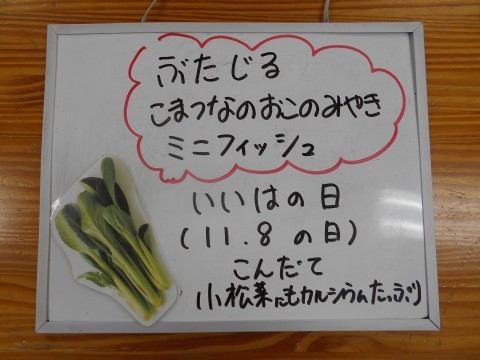 ぶたじる
こまつなのおこのみやき
ミニフィッシュ
いいはの日
(11.8の日)
こんだて
小松菜にもカルシウムたっぷり